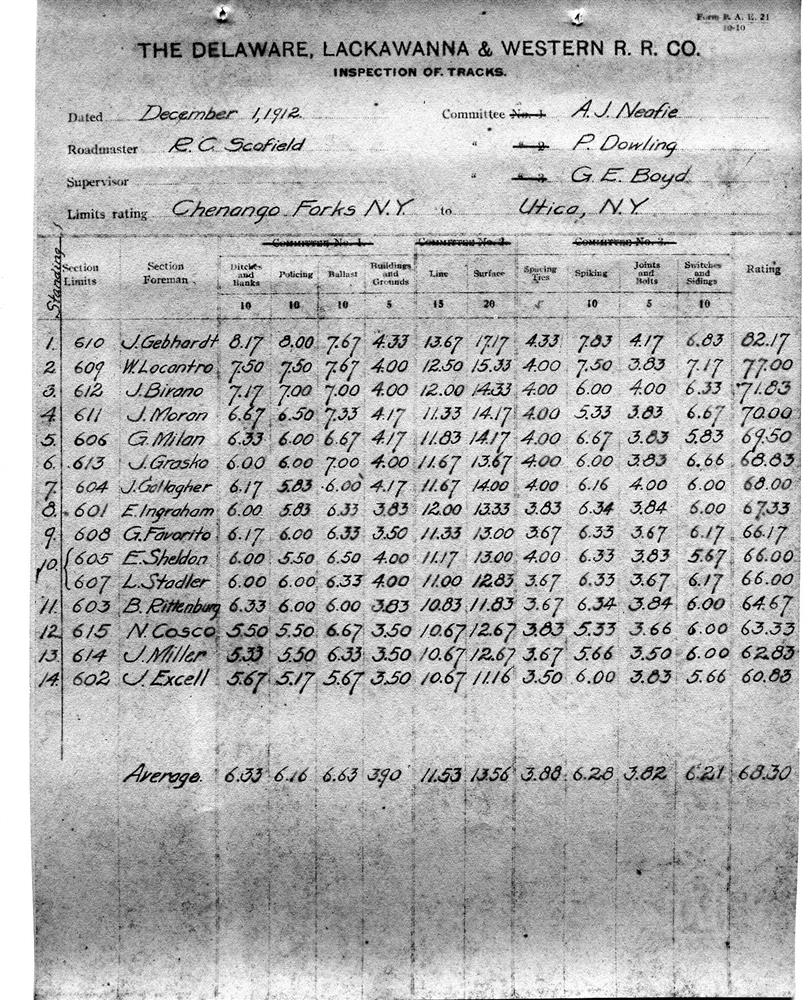 Form R. A. E. 21
10-10
THE DELAWARE, LACKAWANNA & WESTERN R. R. CO.
INSPECTION OF TRACKS.
Dated December 1, 1912. Committee No. 1 A. J. Neafie
Roadmaster R. C. Scofield " " 2 P. Dowling
Supervisor " " 3 G. E. Boyd
Limits rating Chenango Forks N.Y. to Utica, N.Y.
Committee No. 1. Committee No. 2. Committee No. 3.
Standing Section Limits Section Foreman Ditches and Banks Policing Ballast Buildings and Grounds Line Surface Spacing Ties Spiking Joints and Bolts Switches and Sidings Rating
10 10 10 5 15 20 5 10 5 10
1. 610 J. Gebhardt 8.17 8.00 7.67 4.33 13.67 17.17 4.33 7.83 4.17 6.83 82.17
2 609 W. Locantro 7.50 7.50 7.67 4.00 12.50 15.33 4.00 7.50 3.83 7.17 77.00
3. 612 J. Birano 7.17 7.00 7.00 4.00 12.00 14.33 4.00 6.00 4.00 6.33 71.83
4. 611 J. Moran 6.67 6.50 7.33 4.17 11.33 14.17 4.00 5.33 3.83 6.67 70.00
5. 606 G. Milan 6.33 6.00 6.67 4.17 11.83 14.17 4.00 6.67 3.83 5.83 69.50
6. 613 J. Grasko 6.00 6.00 7.00 4.00 11.67 13.67 4.00 6.00 3.83 6.66 68.83
7. 604 J. Gallagher 6.17 5.83 6.00 4.17 11.67 14.00 4.00 6.16 4.00 6.00 68.00
8. 601 E. Ingraham 6.00 5.83 6.33 3.83 12.00 13.33 3.83 6.34 3.84 6.00 67.33
9. 608 G. Favorito 6.17 6.00 6.33 3.50 11.33 13.00 3.67 6.33 3.67 6.17 66.17
10. 605 E. Sheldon 6.00 5.50 6.50 4.00 11.17 13.00 4.00 6.33 3.83 5.67 66.00
607 L. Stadler 6.00 6.00 6.33 4.00 11.00 12.83 3.67 6.33 3.67 6.17 66.00
11. 603 B. Rittenburg 6.33 6.00 6.00 3.83 10.83 11.83 3.67 6.34 3.84 6.00 64.67
12 615 N. Cosco 5.50 5.50 6.67 3.50 10.67 12.67 3.83 5.33 3.66 6.00 63.33
13. 614 J. Miller 5.33 5.50 6.33 3.50 10.67 12.67 3.67 5.66 3.50 6.00 62.83
14. 602 J. Excell 5.67 5.17 5.67 3.50 10.67 11.16 3.50 6.00 3.83 5.66 60.83
Average. 6.33 6.16 6.63 3.90 11.53 13.56 3.88 6.28 3.82 6.21 68.30